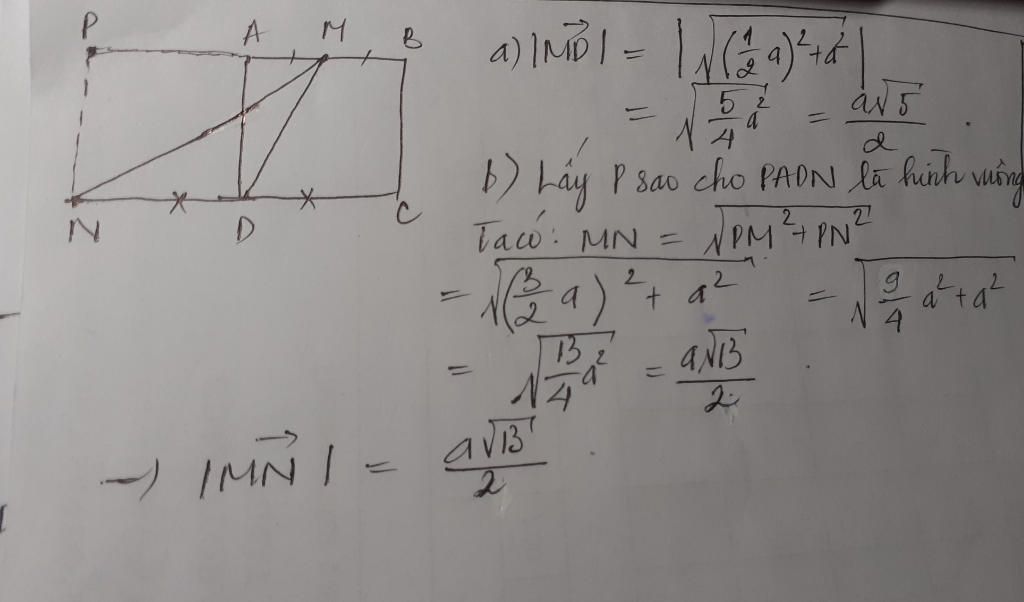 P A M B
N D C
a) |MD⃗| = |√((1/2 a)² + a²)|
= √(5/4 a²) = a√5/2 .
b) Lấy P sao cho PADN là hình vuông
Ta có: MN = √(PM² + PN²)
= √((3/2 a)² + a²) = √(9/4 a² + a²)
= √(13/4 a²) = a√13/2 .
→ |MN⃗| = a√13/2 .